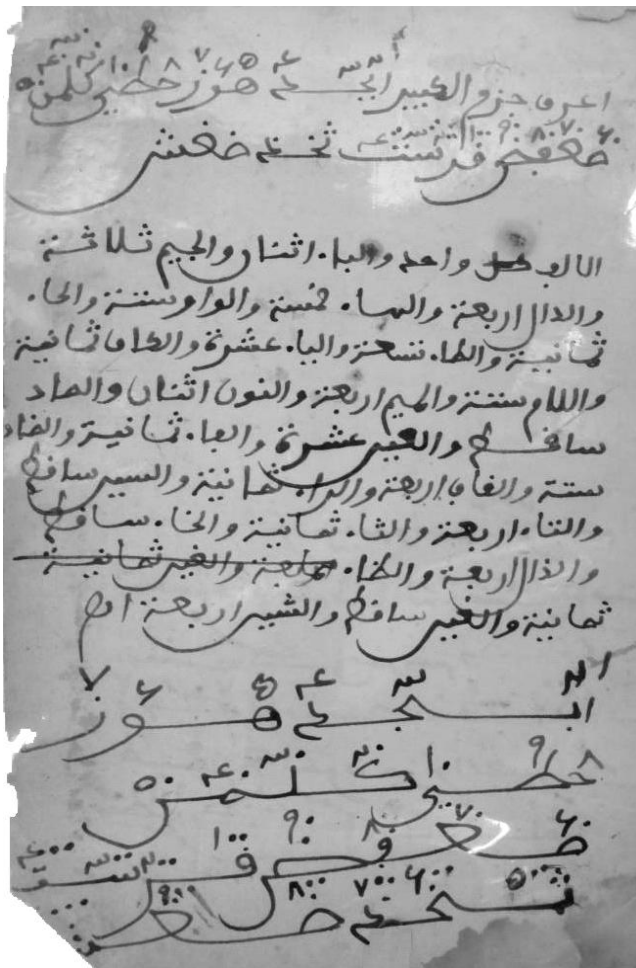 اعرف جزم الكبير ابجد هوز حطي كلمن
صعفض قرست ثخذ ظغش
الالف واحد والباء اثنان والجيم ثلاثة
والدال اربعة والهاء خمسة والواو ستة والحاء
ثمانية والطاء تسعة والياء عشرة والكاف ثمانية
واللام ستة والميم اربعة والنون اثنان والصاد
ساقط والعين عشرة والفاء ثمانية والضاد
ستة والقاف اربعة والراء ثمانية والسين ساقط
والتاء اربعة والثاء ثمانية والخاء ساقط
والذال اربعة والظاء
ثمانية والغين ساقط والشين اربعة
١ ٢ ٣ ٤ ٥ ٦ ٧
ابجد هوز
٨ ٩ ١٠
حطي كلمن
٦٠ ٧٠ ٨٠ ٩٠ ١٠٠
صعفض قرست
٥٠٠ ٦٠٠ ٧٠٠ ٨٠٠ ٩٠٠
ثخذ